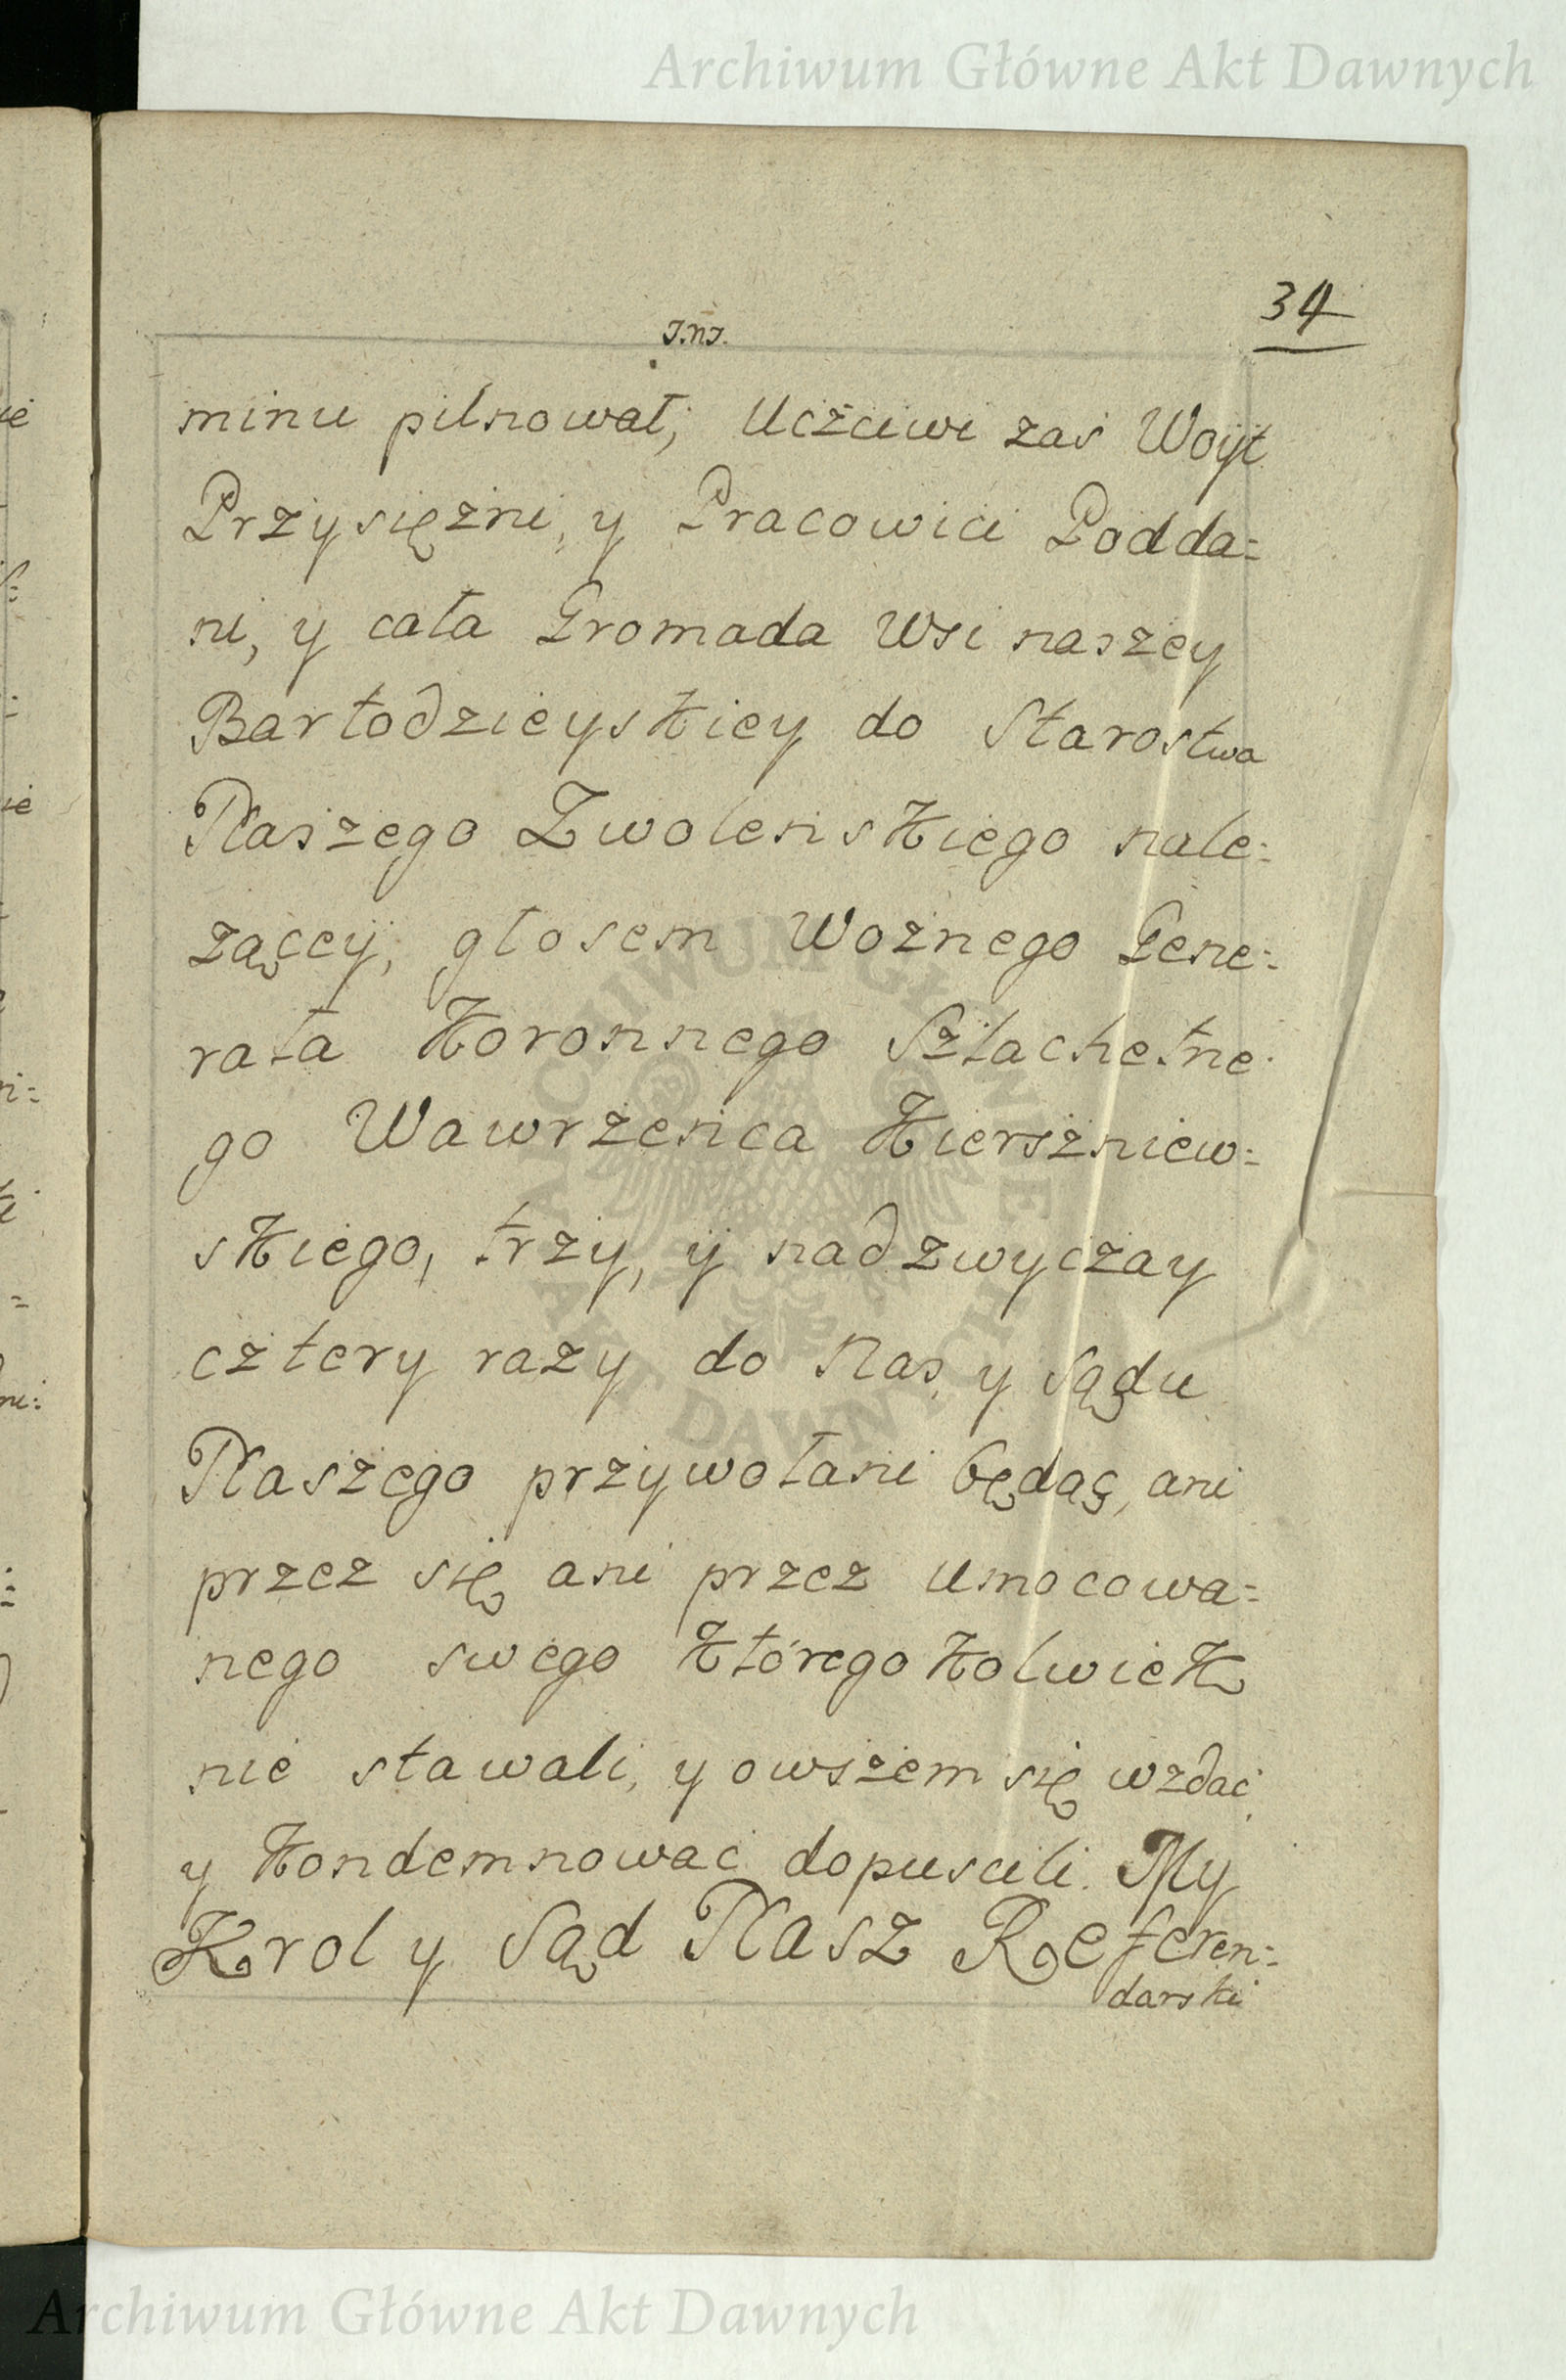 Archiwum Główne Akt Dawnych
34
J.N.J.
minu pilnował; Uczciwi zaś Woyt
Przysięźni, y Pracowici Podda=
ni, y cała Gromada Wsi naszey
Bartodzieyskiey do Starostwa
Naszego Zwolenskiego nale=
zącey, głosem Woznego Gene=
rała Koronnego Szlachetne=
go Wawrzenca Kierszniew=
skiego, trzy, y nadzwyczay
cztery razy do Nas, y Sądu
Naszego przywołani będąc, ani
przez się ani przez umocowa=
nego swego którego kolwiek
nie stawali, y owszem się wzdać
y kondemnować dopuscili. My
Krol y Sąd Nasz Referen=
darski
ARCHIWUM GŁÓWNE
AKT DAWNYCH
Archiwum Główne Akt Dawnych